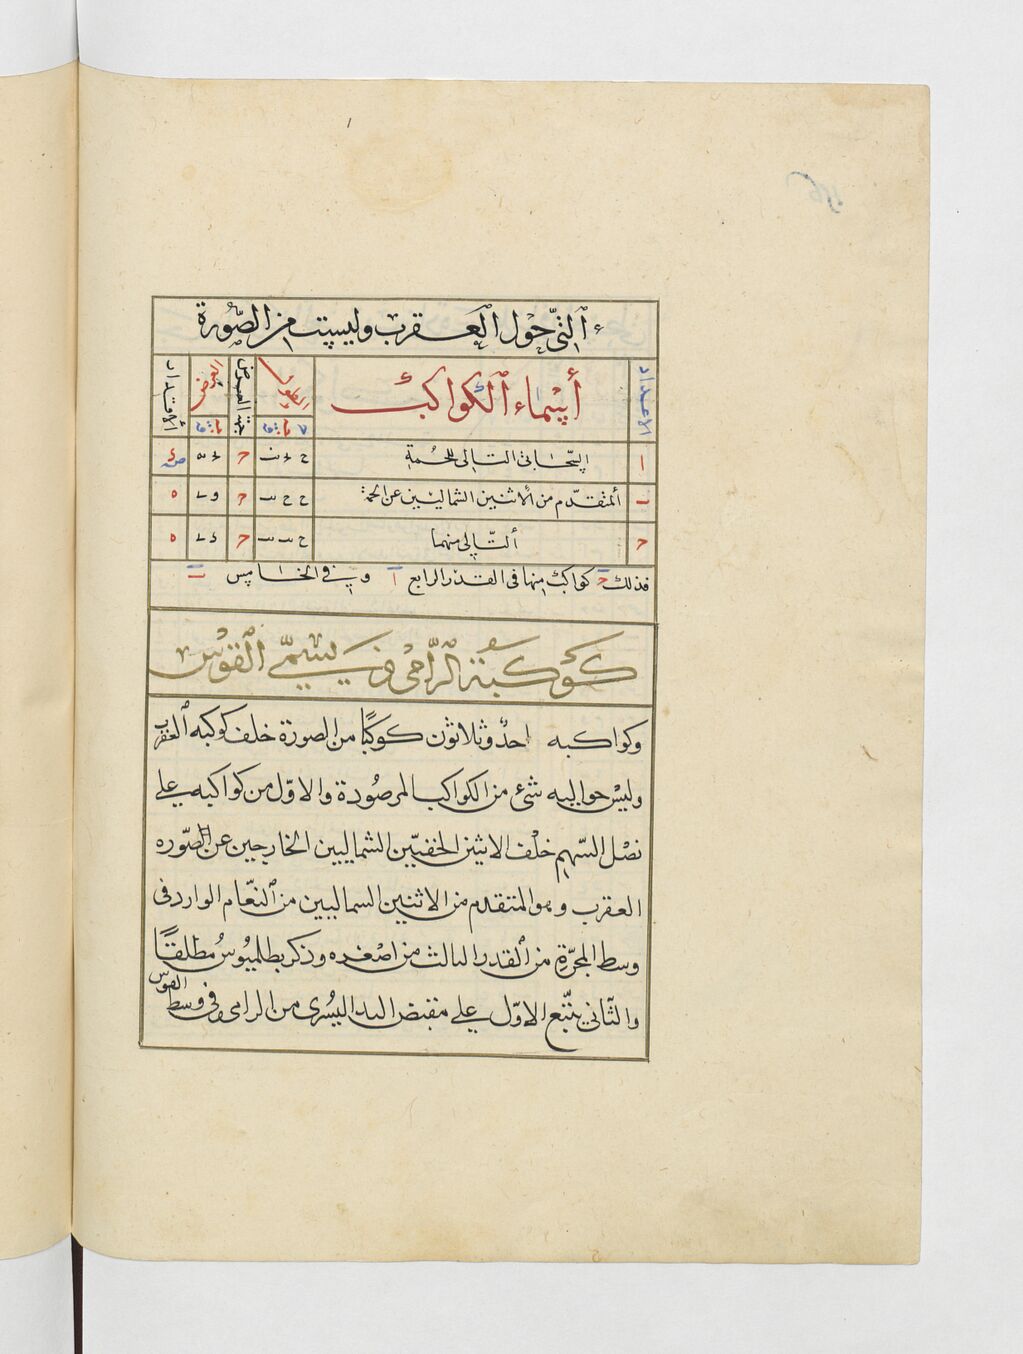 ٱلتّى حَوْل العَقرب وليست من الصّورة
الاعداد
أسْماء ٱلكواكب
الطول
جهة العرض
العرض
الأقدار
ا السّحابى التالى للحُمة
ب ألمتقدّم من الاثنين الشماليين عن الحمة
ح ألتّالى منهما
فذلك ح كواكب منها فى القدر الرابع ا وفى الخامس ب
كَوْكبَة الرَّامى وَيُسَمّى القَوْس
وكواكبه احدٌ وثلاثون كوكبًا من الصورة خلف كوكبه العقرب
وليْس حواليه شئ من الكواكب المرصُودة والاوّل من كواكبه على
نصْل السّهم خلْف الاثنين الخفيّين الشماليين الخارجين عن الصّوره
العقرب وهو المتقدم من الاثنين السماليين من النّعَام الوارد فى
وسط المجرّة من القدر الثالث من اصْغره وذكر بطلميُوسُ مُطلقًا
والثّانى يتّبع الاوّل على مقبض اليد اليُسرى من الرامى وفى وسط القوس